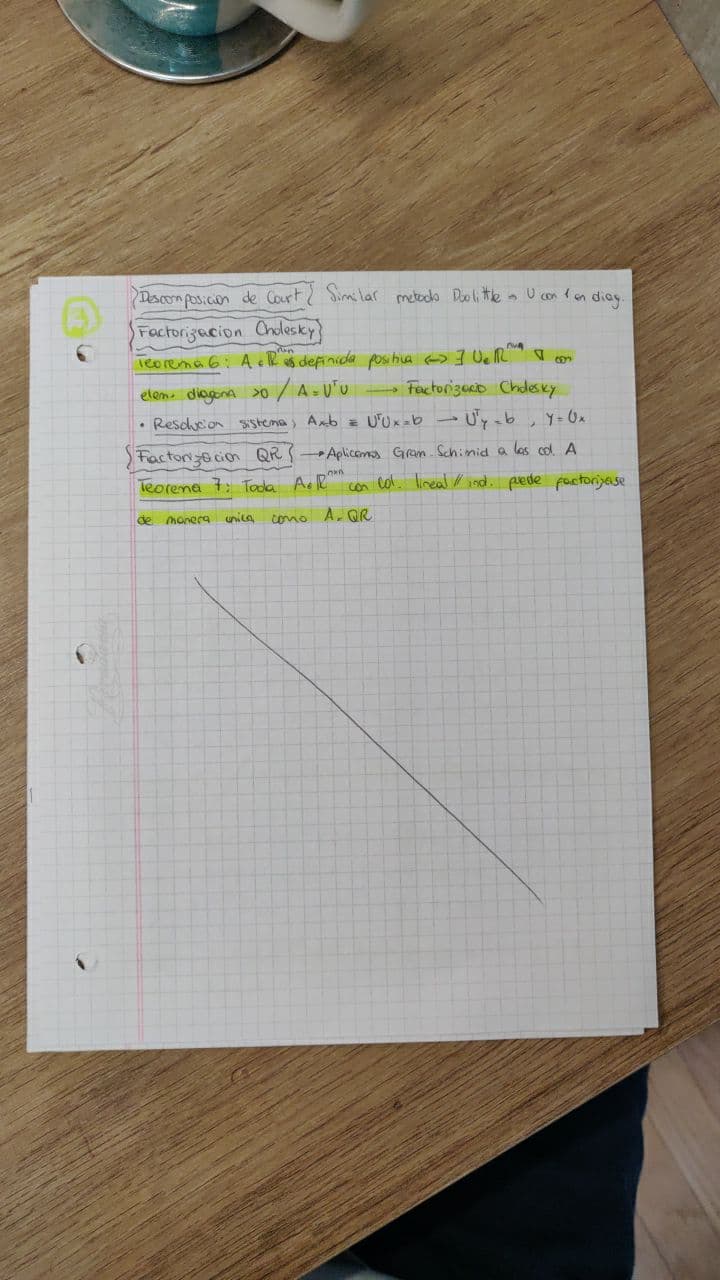 Descomposicion de Court Similar metodo Doolittle → U con 1 en diag.
Factorizacion Cholesky
Teorema 6: A ∈ R^nxn es definida positiva <-> ∃ U ∈ R^nxn ∇ con
elem. diagona >0 / A = U^T U → Factorizacio Cholesky
• Resolucion sistema; Ax=b ≡ U^T Ux=b → U^T y=b , y=Ux
Factorizacion QR → Aplicamos Gram-Schimid a las col. A
Teorema 7: Toda A ∈ R^nxn con col. lineal // ind. puede factorizase
de manera unica como A=QR